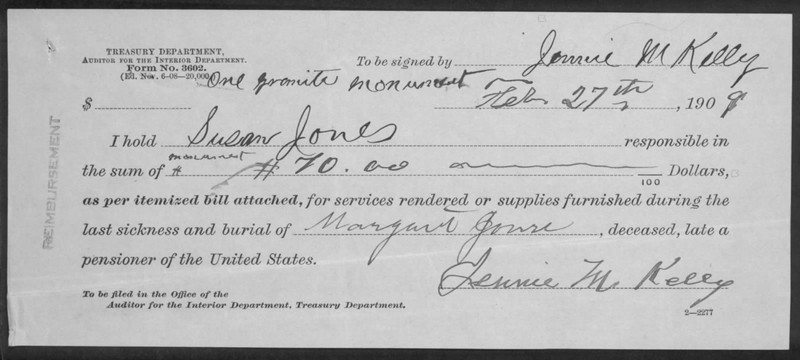 TREASURY DEPARTMENT,
AUDITOR FOR THE INTERIOR DEPARTMENT.
Form No. 3602.
(Ed. Nov. 6-08-20,000)
To be signed by Jennie M Kelly
One granite monument
$ Feb 27th, 1909
I hold Susan Jones responsible in
monument
the sum of # 70.00 /100 Dollars,
as per itemized bill attached, for services rendered or supplies furnished during the
last sickness and burial of Margaret Jones, deceased, late a
pensioner of the United States.
Jennie M Kelly
To be filed in the Office of the
Auditor for the Interior Department, Treasury Department.
2-2277
REIMBURSEMENT